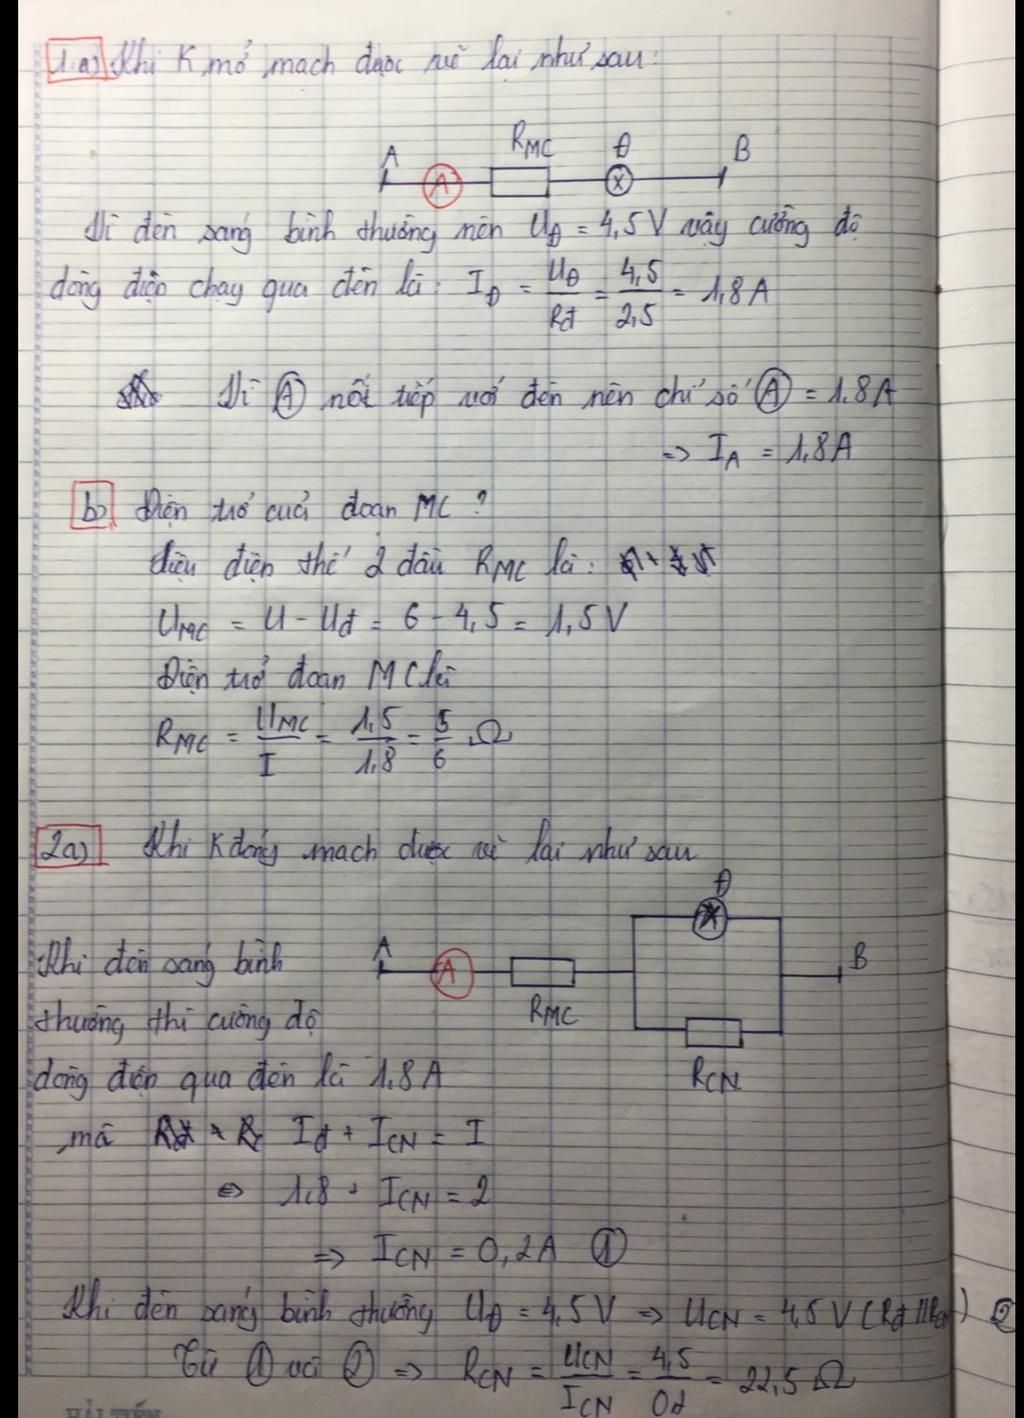 1.a) Khi K mở mạch được vẽ lại như sau:
A A RMC Đ B
Vì đèn sáng bình thường nên UĐ = 4,5V vậy cường độ
dòng điện chạy qua đèn là: IĐ = UĐ/Rđ = 4,5/2,5 = 1,8A
Vì (A) nối tiếp với đèn nên chỉ số (A) = 1.8A
=> IA = 1,8A
b) Điện trở của đoạn MC?
Hiệu điện thế 2 đầu RMC là:
UMC = U - Uđ = 6 - 4,5 = 1,5V
Điện trở đoạn MC là
RMC = UMC/I = 1,5/1,8 = 5/6 Ω
2a) Khi K đóng mạch được vẽ lại như sau
Đ
Khi đèn sáng bình A A B
thường thì cường độ RMC
dòng điện qua đèn là 1,8A RCN
mà Iđ + ICN = I
⇔ 1,8 + ICN = 2
=> ICN = 0,2A ①
Khi đèn sáng bình thường UĐ = 4,5V => UCN = 4,5V (Rđ // RCN) ②
Từ ① và ② => RCN = UCN/ICN = 4,5/0,2 = 22,5 Ω